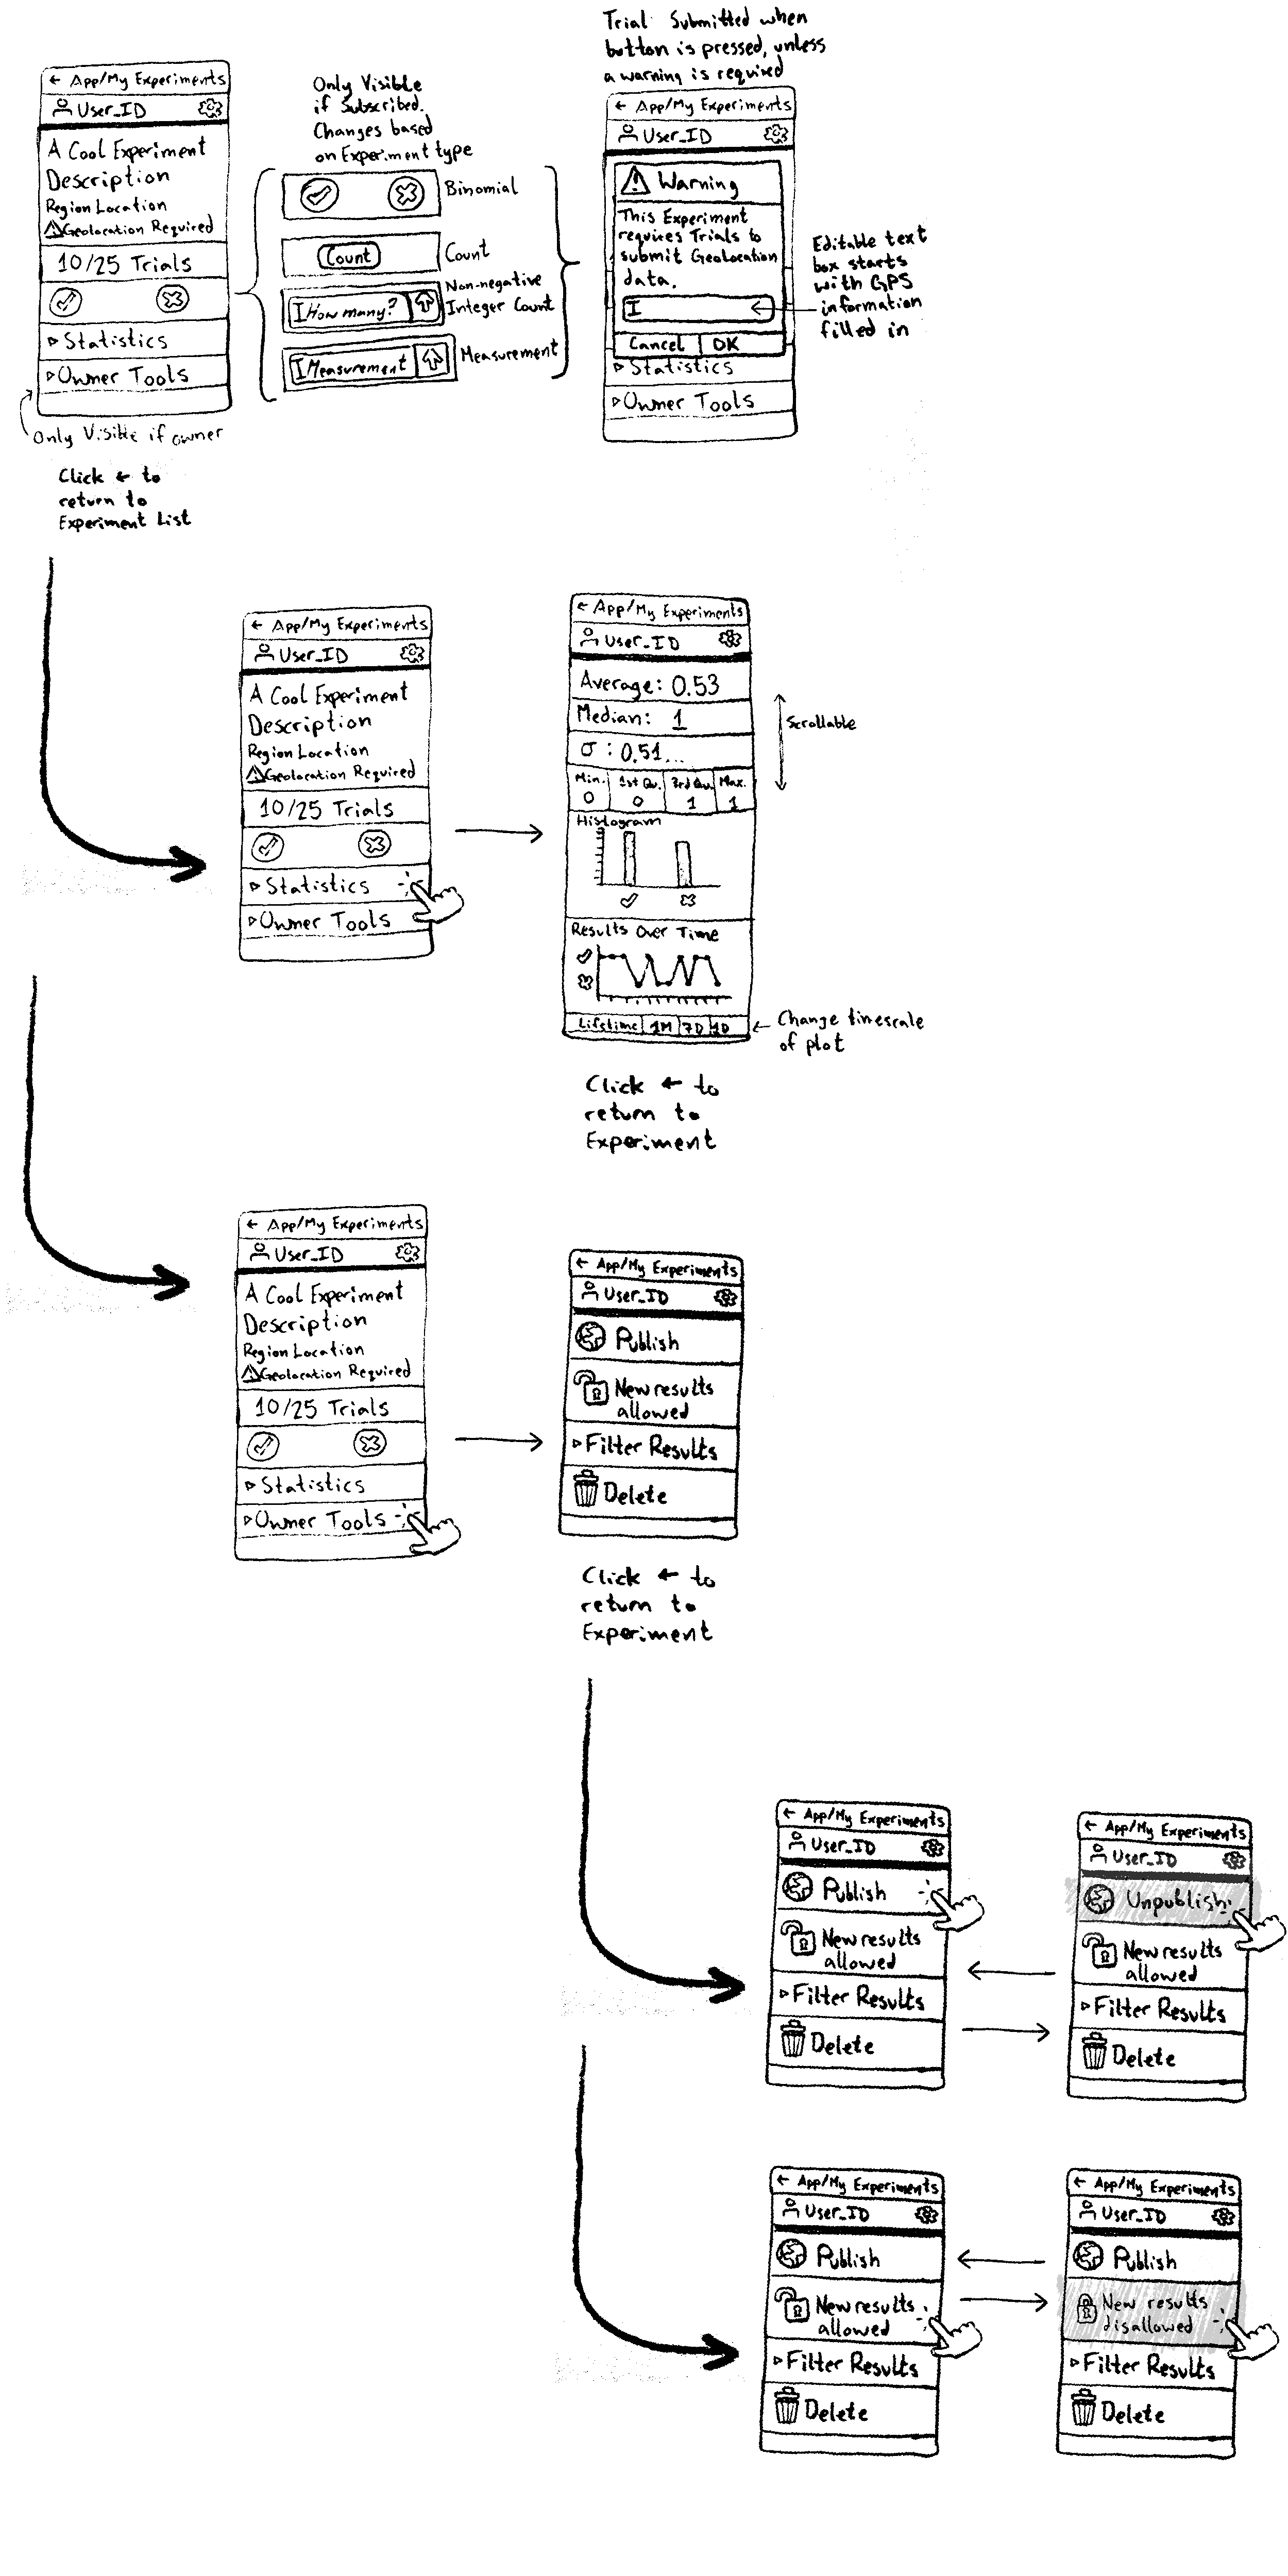 Trial Submitted when
button is pressed, unless
a warning is required
← App/My Experiments
User_ID
A Cool Experiment
Description
Region Location
Geolocation Required
10/25 Trials
Statistics
Owner Tools
Only Visible if owner
Click ← to
return to
Experiment List
Only Visible
if Subscribed.
Changes based
on Experiment type
Binomial
Count
Count
I How many?
Non-negative
Integer Count
I Measurement
Measurement
← App/My Experiments
User_ID
Warning
This Experiment
requires Trials to
submit Geolocation
data.
I
Cancel OK
Statistics
Owner Tools
Editable text
box starts
with GPS
information
filled in
← App/My Experiments
User_ID
A Cool Experiment
Description
Region Location
Geolocation Required
10/25 Trials
Statistics
Owner Tools
← App/My Experiments
User_ID
Average: 0.53
Median: 1
σ : 0.51...
Min. 1st Qu. 3rd Qu. Max.
0 0 1 1
Histogram
Results Over Time
Lifetime 1M 7D 1D
Scrollable
← Change timescale
of plot
Click ← to
return to
Experiment
← App/My Experiments
User_ID
A Cool Experiment
Description
Region Location
Geolocation Required
10/25 Trials
Statistics
Owner Tools
← App/My Experiments
User_ID
Publish
New results
allowed
Filter Results
Delete
Click ← to
return to
Experiment
← App/My Experiments
User_ID
Publish
New results
allowed
Filter Results
Delete
← App/My Experiments
User_ID
Unpublish
New results
allowed
Filter Results
Delete
← App/My Experiments
User_ID
Publish
New results
allowed
Filter Results
Delete
← App/My Experiments
User_ID
Publish
New results
disallowed
Filter Results
Delete